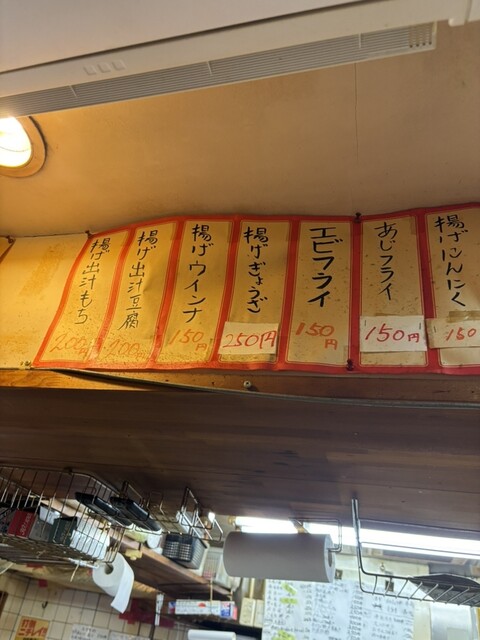 揚げにんにく
150
あじフライ
150円
エビフライ
150円
揚げぎょうざ
250円
揚げウインナ
150円
揚げ出汁豆腐
200円
揚げ出汁もち
200円